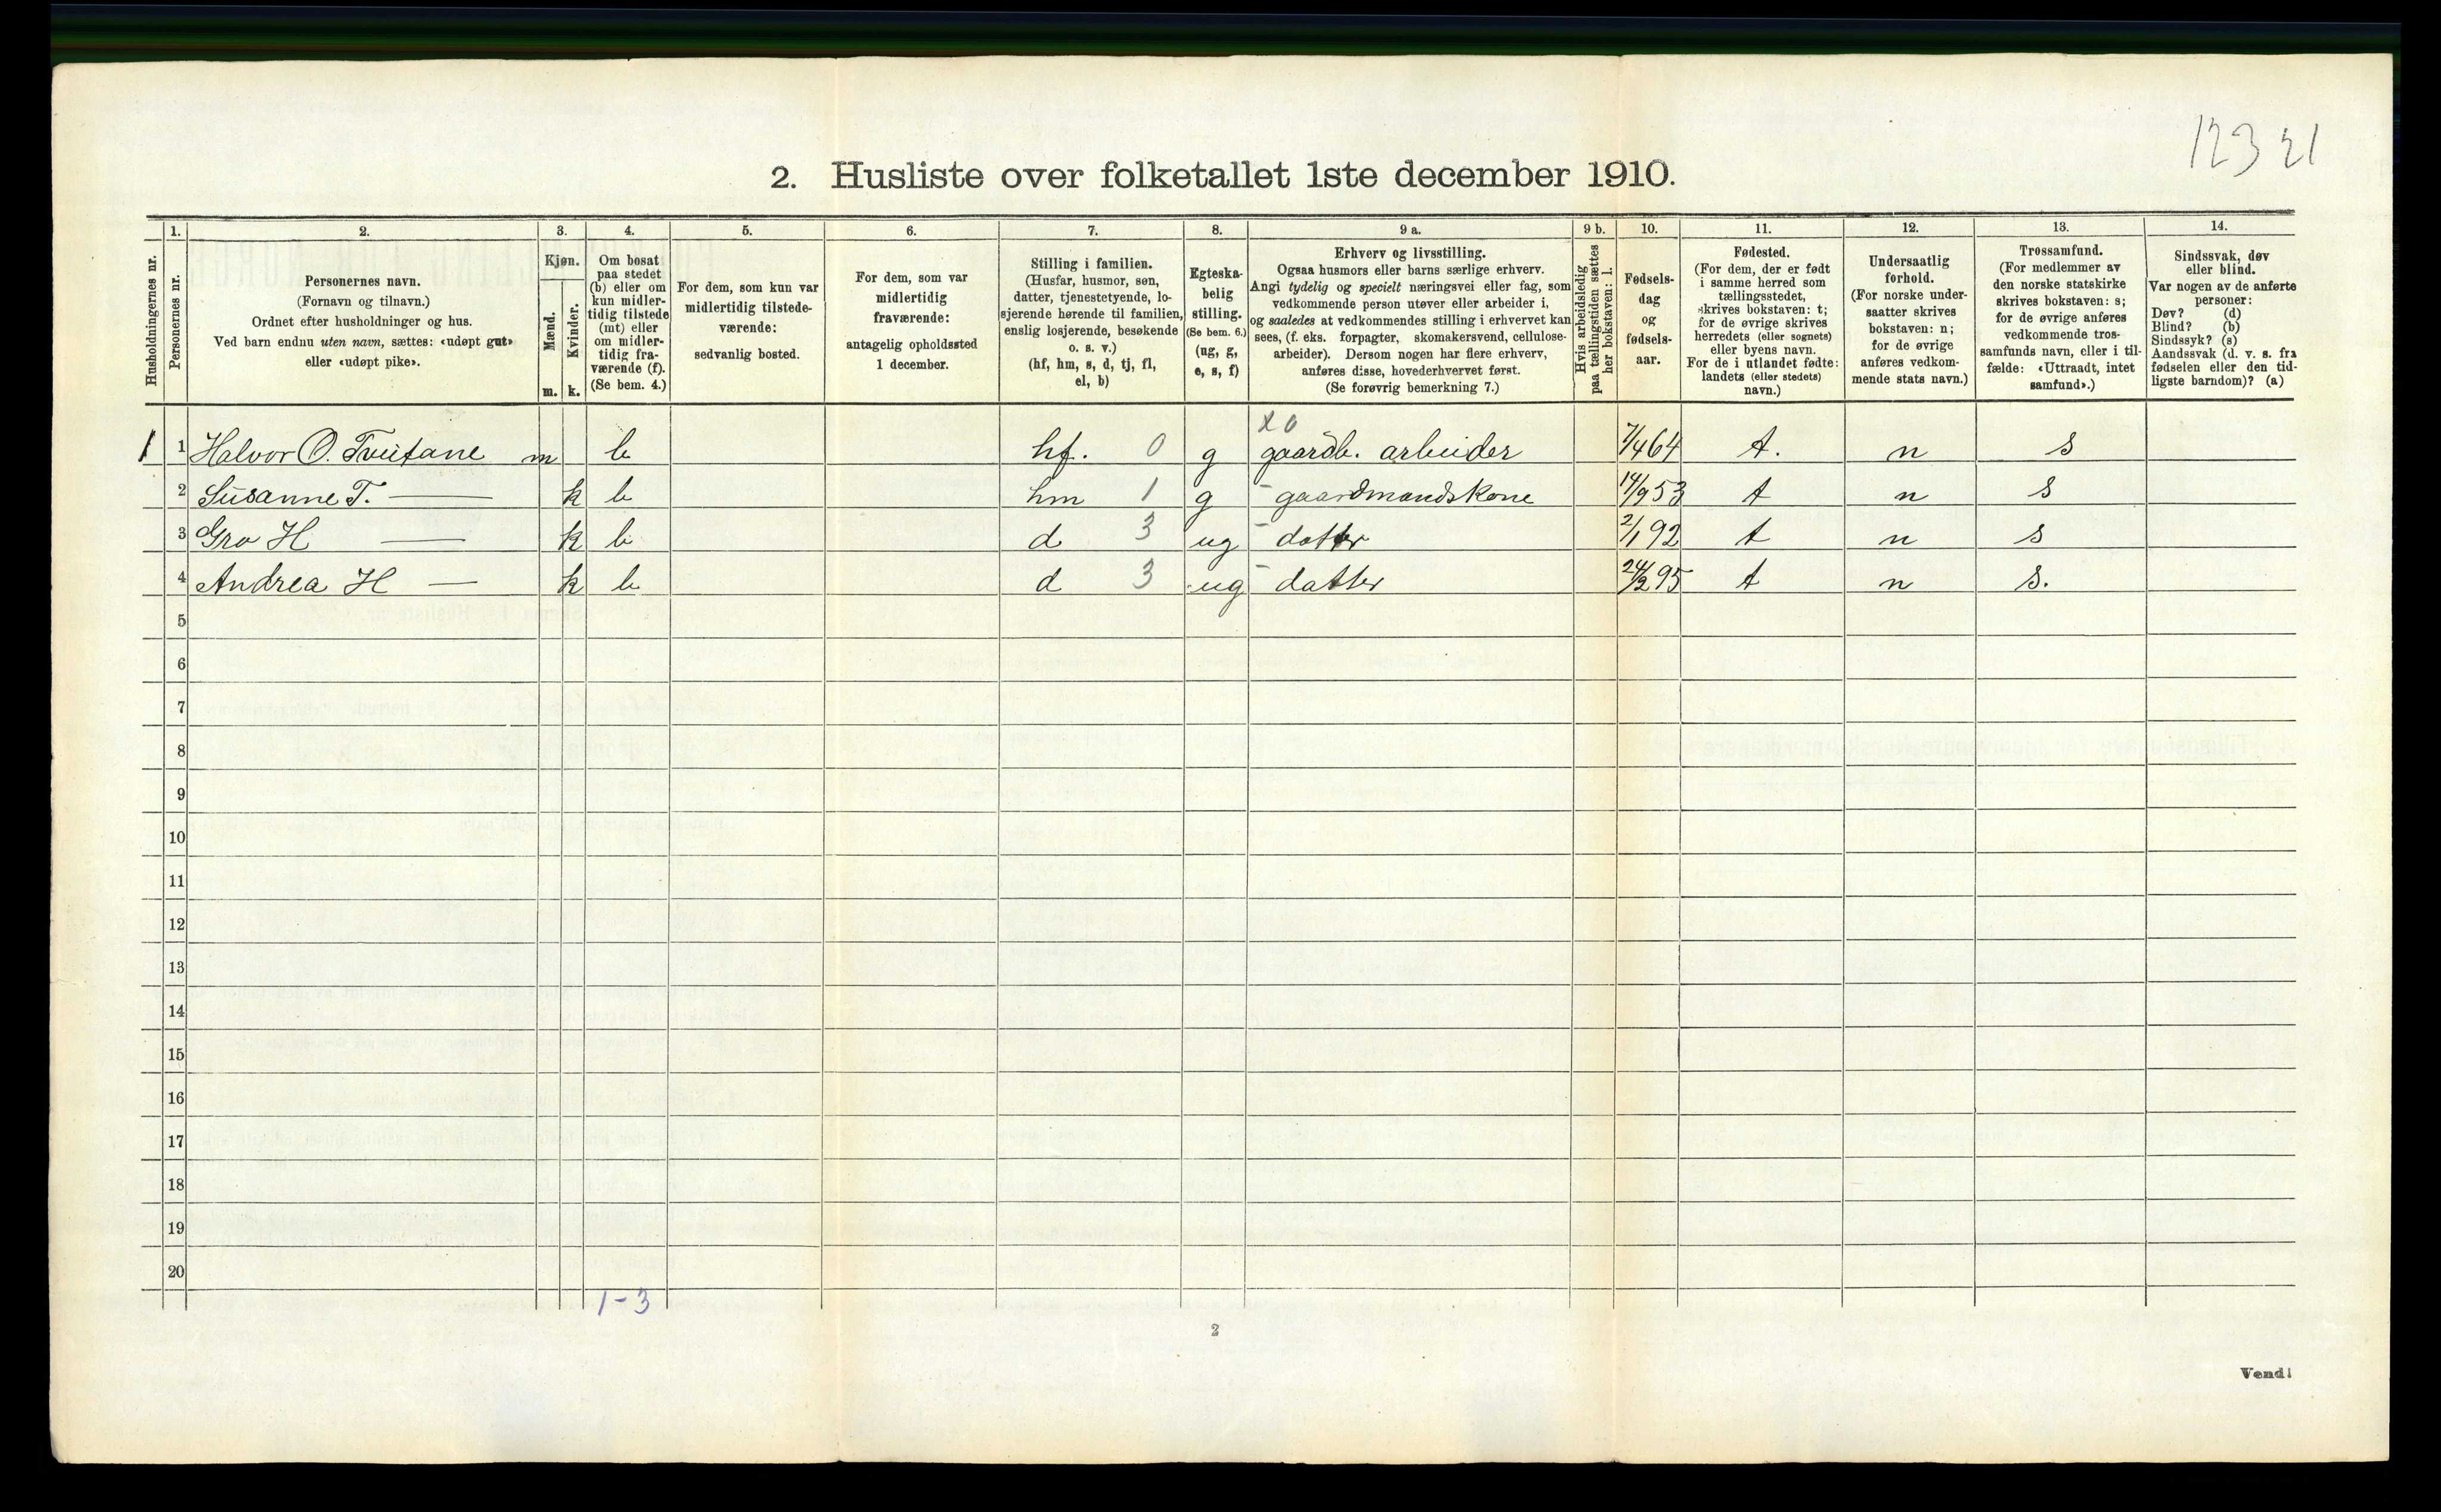 12321
2. Husliste over folketallet 1ste december 1910.
Husholdningernes nr.
1.
Personernes nr.
2.
Personernes navn.
(Fornavn og tilnavn.)
Ordnet efter husholdninger og hus.
Ved barn endnu uten navn, sættes: «udøpt gut»
eller «udøpt pike».
3.
Kjøn.
Mænd.
m.
Kvinder.
k.
4.
Om bosat
paa stedet
(b) eller om
kun midler-
tidig tilstede
(mt) eller
om midler-
tidig fra-
værende (f).
(Se bem. 4.)
5.
For dem, som kun var
midlertidig tilstede-
værende:
sedvanlig bosted.
6.
For dem, som var
midlertidig
fraværende:
antagelig opholdssted
1 december.
7.
Stilling i familien.
(Husfar, husmor, søn,
datter, tjenestetyende, lo-
sjerende hørende til familien,
enslig losjerende, besøkende
o. s. v.)
(hf, hm, s, d, tj, fl,
el, b)
8.
Egteska-
belig
stilling.
(Se bem. 6.)
(ug, g,
e, s, f)
9 a.
Erhverv og livsstilling.
Ogsaa husmors eller barns særlige erhverv.
Angi tydelig og specielt næringsvei eller fag, som
vedkommende person utøver eller arbeider i,
og saaledes at vedkommendes stilling i erhvervet kan
sees, (f. eks. forpagter, skomakersvend, cellulose-
arbeider). Dersom nogen har flere erhverv,
anføres disse, hovederhvervet først.
(Se forøvrig bemerkning 7.)
9 b.
Hvis arbeidsledig
paa tællingstiden sættes
her bokstaven: l.
10.
Fødsels-
dag
og
fødsels-
aar.
11.
Fødested.
(For dem, der er født
i samme herred som
tællingsstedet,
skrives bokstaven: t;
for de øvrige skrives
herredets (eller sognets)
eller byens navn.
For de i utlandet fødte:
landets (eller stedets)
navn.)
12.
Undersaatlig
forhold.
(For norske under-
saatter skrives
bokstaven: n;
for de øvrige
anføres vedkom-
mende stats navn.)
13.
Trossamfund.
(For medlemmer av
den norske statskirke
skrives bokstaven: s;
for de øvrige anføres
vedkommende tros-
samfunds navn, eller i til-
fælde: «Uttraadt, intet
samfund».)
14.
Sindssvak, døv
eller blind.
Var nogen av de anførte
personer:
Døv? (d)
Blind? (b)
Sindssyk? (s)
Aandssvak (d. v. s. fra
fødselen eller den tid-
ligste barndom)? (a)
x0
1 1 Halvor O. Tveitane m b hf. 0 g gaardb. arbeider 7/4 64 t. n s
2 Susanne T. — k b hm 1 g - gaardmandskone 14/9 53 t n s
3 Gro H — k b d 3 ug - datter 2/1 92 t n s
4 Andrea H — k b d 3 ug - datter 24/2 95 t n s.
5
6
7
8
9
10
11
12
13
14
15
16
17
18
19
20
1-3
2
Vend!